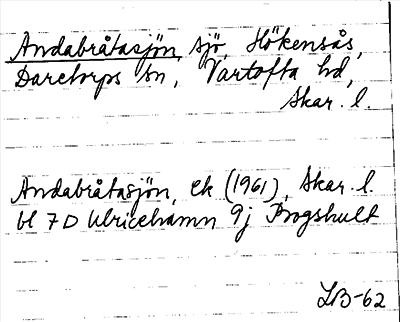 Andabråtasjön, sjö, Hökensås,
Daretorps sn, Vartofta hd,
Skar. l.
Andabråtasjön, ek (1961), Skar. l.
bl 7D Ulricehamn 9j Brogshult
LB-62